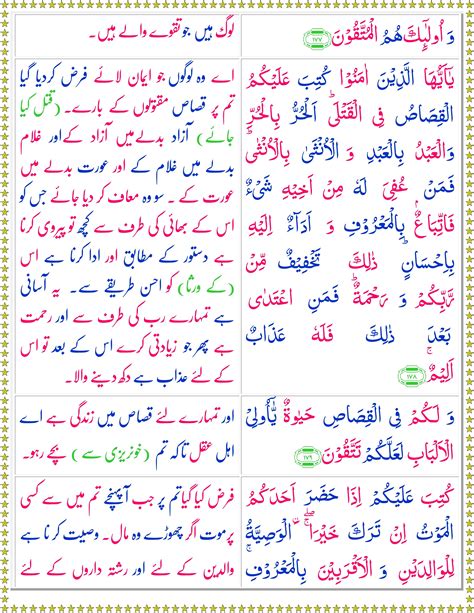 وَ أُولٰٓئِكَ هُمُ الْمُتَّقُوْنَ ﴿۱۷۷﴾
لوگ ہیں جو تقوے والے ہیں۔
يٰٓاَيُّهَا الَّذِيْنَ اٰمَنُوْا كُتِبَ عَلَيْكُمُ
الْقِصَاصُ فِي الْقَتْلٰى ؕ اَلْحُرُّ بِالْحُرِّ
وَالْعَبْدُ بِالْعَبْدِ وَ الْاُنْثٰى بِالْاُنْثٰى ؕ
فَمَنْ عُفِيَ لَهٗ مِنْ اَخِيْهِ شَيْءٌ
فَاتِّبَاعٌۢ بِالْمَعْرُوْفِ وَ اَدَآءٌ اِلَيْهِ
بِاِحْسَانٍ ؕ ذٰلِكَ تَخْفِيْفٌ مِّنْ
رَّبِّكُمْ وَ رَحْمَةٌ ؕ فَمَنِ اعْتَدٰى
بَعْدَ ذٰلِكَ فَلَهٗ عَذَابٌ
اَلِيْمٌ ۚ ﴿۱۷۸﴾
اے وہ لوگوں جو ایمان لائے فرض کردیا گیا
تم پر قصاص مقتولوں کے بارے۔ (قتل کیا
جائے) آزاد بدلے میں آزاد کے اور غلام
بدلے میں غلام کے اور عورت بدلے میں
عورت کے ۔ سو وہ معاف کر دیا جائے جس کو
اس کے بھائی کی طرف سے کچھ تو پیروی کرنا
ہے دستور کے مطابق اور ادا کرنا ہے اس
(کے ورثا) کو احسن طریقے سے۔ یہ آسانی
ہے تمہارے رب کی طرف سے اور رحمت
ہے پھر جو زیادتی کرے اس کے بعد تو اس
کے لئے عذاب ہے دکھ دینے والا۔
وَ لَكُمْ فِي الْقِصَاصِ حَيٰوةٌ يّٰٓاُولِي
الْاَلْبَابِ لَعَلَّكُمْ تَتَّقُوْنَ ﴿۱۷۹﴾
اور تمہارے لئے قصاص میں زندگی ہے اے
اہل عقل تا کہ تم (خونریزی سے ) بچے رہو۔
كُتِبَ عَلَيْكُمْ اِذَا حَضَرَ اَحَدَكُمُ
الْمَوْتُ اِنْ تَرَكَ خَيْرَا ۖۚ الْوَصِيَّةُ
لِلْوَالِدَيْنِ وَ الْاَقْرَبِيْنَ بِالْمَعْرُوْفِ ۚ
فرض کیا گیا تم پر جب آپہنچے تم میں سے کسی
پر موت اگر چھوڑے وہ مال۔ وصیت کرنا ہے
والدین کے لئے اور رشتہ داروں کے لئے